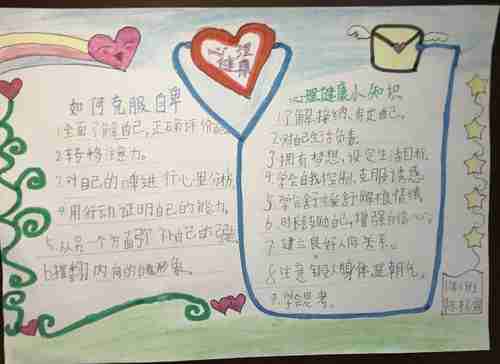 心理
健康
如何克服自卑
1.全面了解自己,正确评价自己
2.转移注意力。
3.对自己的 进行心里分析
4.用行动证明自己的能力。
5.从另一个方面弥补自己的
6. 内向的 形象。
心理健康小知识
1.了解、接纳、肯定自己。
2.对自己生活负责。
3.拥有梦想,设定生活目标
4.学会自我控制,克服诱惑
5.学会舒 舒解负情绪
6.对 鼓励自己,增强自信心
7.建立良好人际关系。
8.注意 身体 朝气。
9.学会思考。